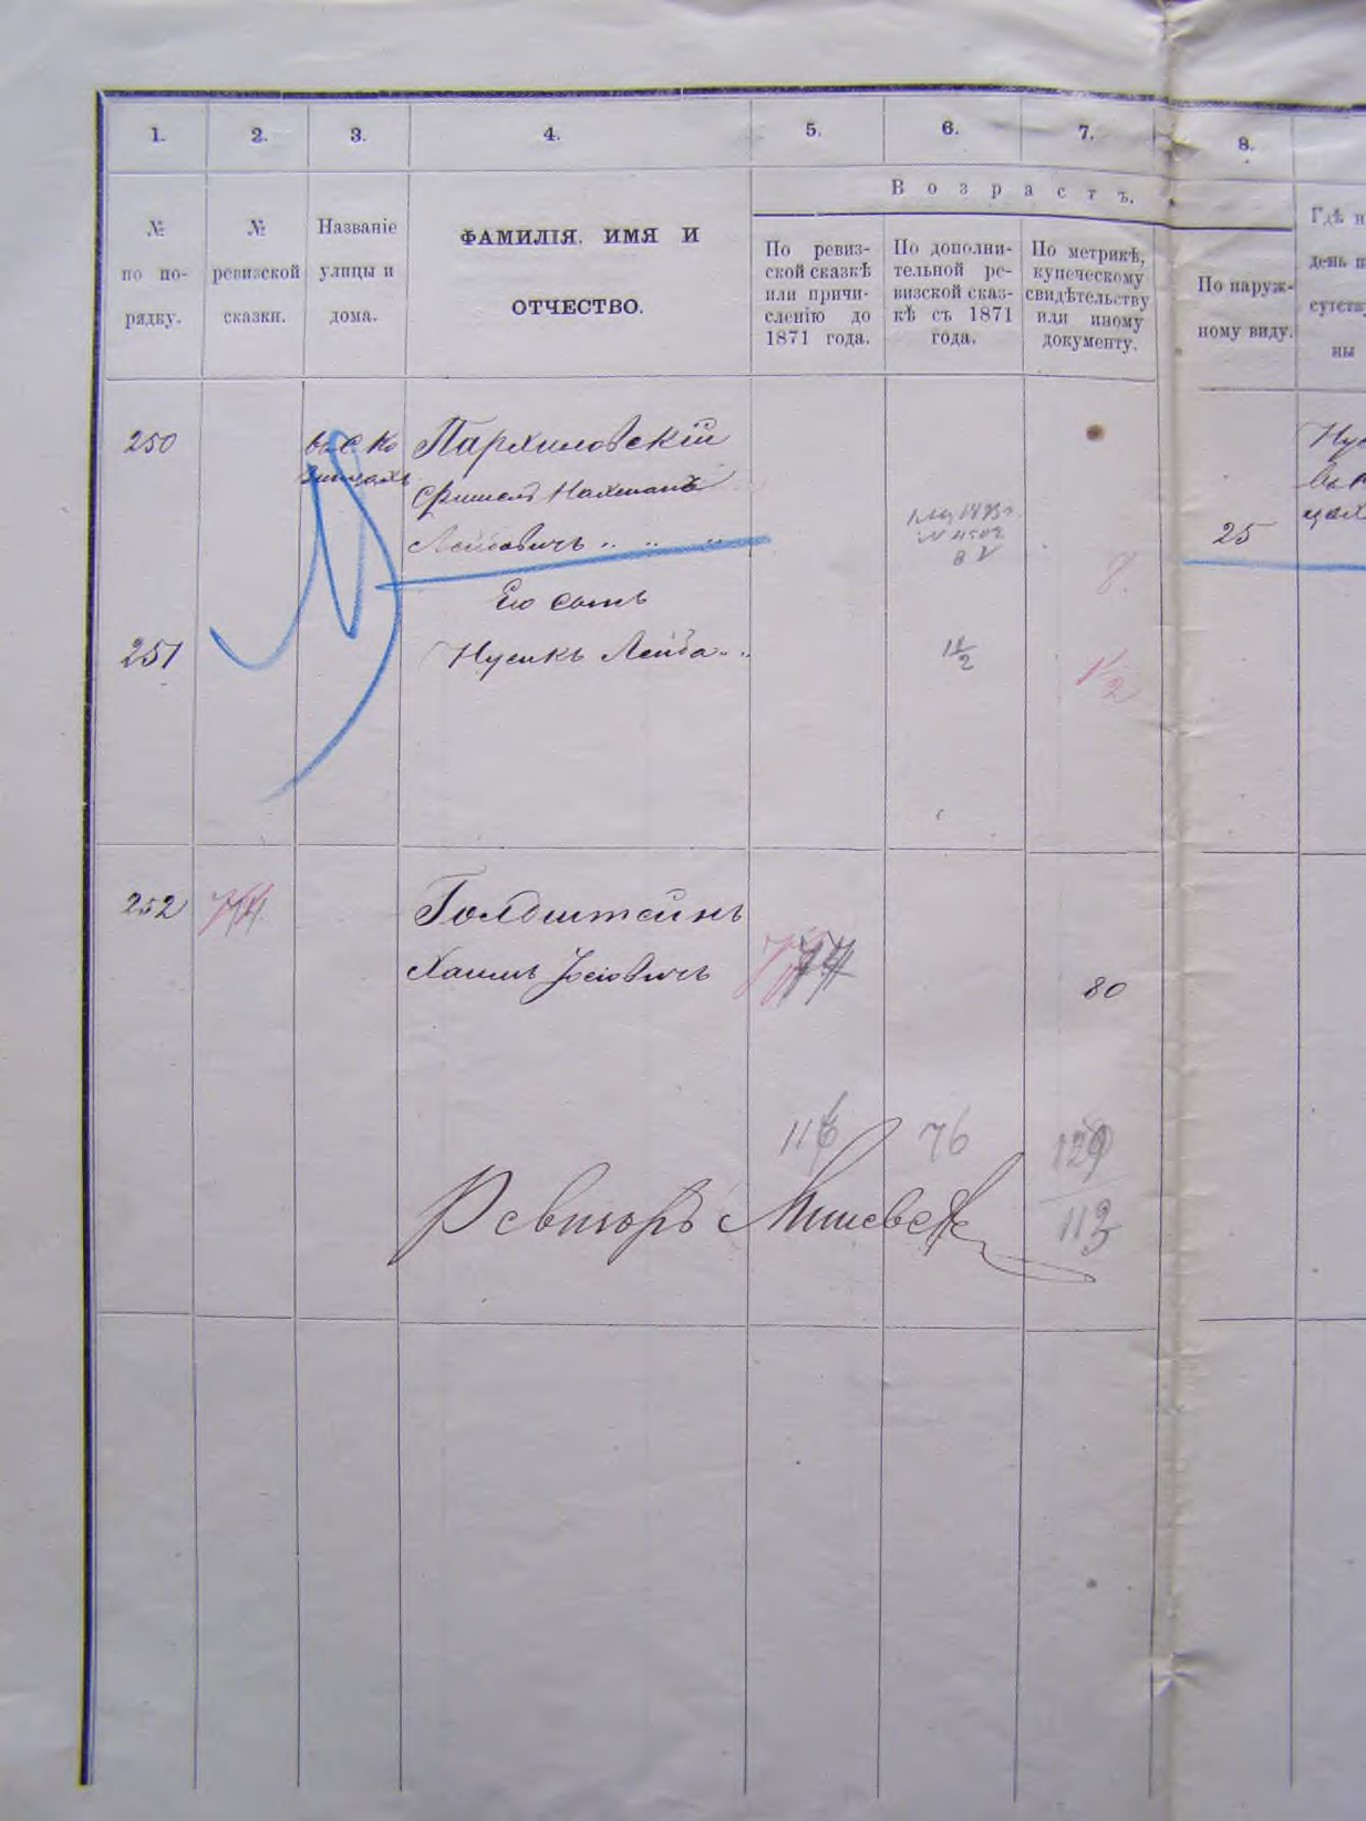 1. 2. 3. 4. 5. 6. 7. 8.
Возрастъ.
№ по по-рядку.
№ ревизской сказки.
Названіе улицы и дома.
ФАМИЛІЯ, ИМЯ И
ОТЧЕСТВО.
По ревиз-
ской сказкѣ
или причи-
сленію до
1871 года.
По дополни-
тельной ре-
визской сказ-
кѣ съ 1871
года.
По метрикѣ,
купеческому
свидѣтельству
или иному
документу.
По наруж-
ному виду.
Гдѣ н
день п
сутств
ны
250 въ с. Ко Пархиловскій
Фишель Нахманъ
Лейбовичъ 25
8
Его сынъ
251 Нусикъ Лейба 1 1/2 1 1/2
252 74 Голдштейнъ
Хаимъ Іосіовичъ 74 80
116 76 129
113
Ревизоръ